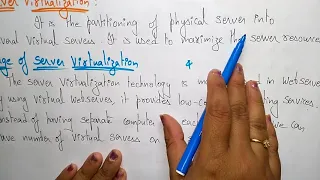 Server Virtualization
It is the partitioning of physical server into
Virtual Servers. It is used to maximize the server resource
ge of Server Virtualization
The Server Virtualization technology is in Web
using virtual Webservers, it provides low-co services.
instead of having separate computer each we can
ave number of virtual servers on